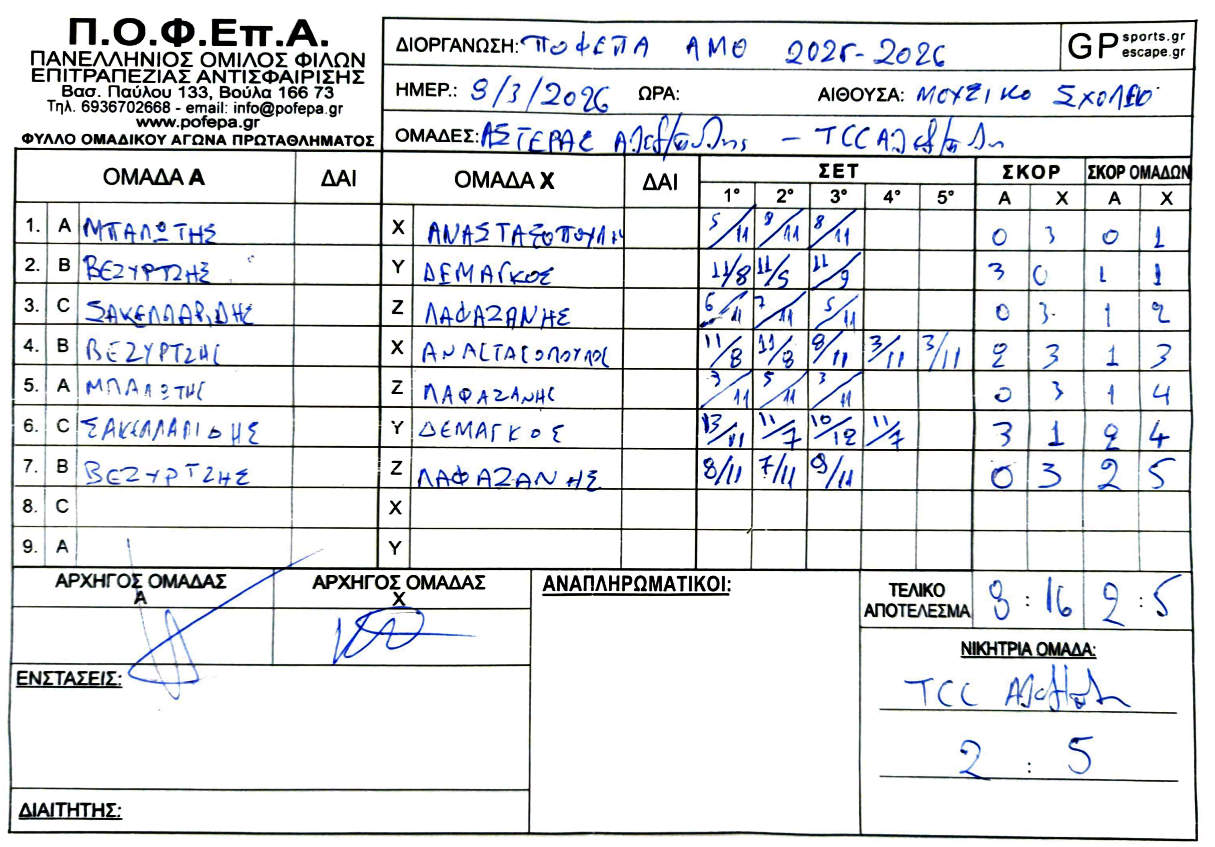 Π.Ο.Φ.Επ.Α.
ΠΑΝΕΛΛΗΝΙΟΣ ΟΜΙΛΟΣ ΦΙΛΩΝ
ΕΠΙΤΡΑΠΕΖΙΑΣ ΑΝΤΙΣΦΑΙΡΙΣΗΣ
Βασ. Παύλου 133, Βούλα 166 73
Τηλ. 6936702668 - email: info@pofepa.gr
www.pofepa.gr
ΦΥΛΛΟ ΟΜΑΔΙΚΟΥ ΑΓΩΝΑ ΠΡΩΤΑΘΛΗΜΑΤΟΣ
ΔΙΟΡΓΑΝΩΣΗ: ΠΟΦΕΠΑ ΑΜΘ 2025-2026
GP sports.gr escape.gr
ΗΜΕΡ.: 9/3/2026 ΩΡΑ: ΑΙΘΟΥΣΑ: ΜΟΥΣΙΚΟ ΣΧΟΛΕΙΟ
ΟΜΑΔΕΣ: ΑΣΤΕΡΑΣ Αλεξ/πολης - TCC Αλεξ/πολη
ΟΜΑΔΑ Α ΔΑΙ ΟΜΑΔΑ Χ ΔΑΙ ΣΕΤ ΣΚΟΡ ΣΚΟΡ ΟΜΑΔΩΝ
1° 2° 3° 4° 5° Α Χ Α Χ
1. A ΜΠΑΛΩΤΗΣ X ΑΝΑΣΤΑΣΟΠΟΥΛ 5/11 9/11 8/11 0 3 0 1
2. B ΒΕΖΥΡΤΖΗΣ Y ΔΕΜΑΓΚΟΣ 11/8 11/5 11/9 3 0 1 1
3. C ΣΑΚΕΛΛΑΡΙΔΗΣ Z ΛΑΦΑΖΑΝΗΣ 6/11 7/11 5/11 0 3 1 2
4. B ΒΕΖΥΡΤΖΗΣ X ΑΝΑΣΤΑΣΟΠΟΥΛΟΣ 11/8 11/8 9/11 3/11 3/11 2 3 1 3
5. A ΜΠΑΛΩΤΗΣ Z ΛΑΦΑΖΑΝΗΣ 3/11 5/11 3/11 0 3 1 4
6. C ΣΑΚΕΛΛΑΡΙΔΗΣ Y ΔΕΜΑΓΚΟΣ 13/11 11/7 10/12 11/7 3 1 2 4
7. B ΒΕΖΥΡΤΖΗΣ Z ΛΑΦΑΖΑΝΗΣ 8/11 7/11 9/11 0 3 2 5
8. C X
9. A Y
ΑΡΧΗΓΟΣ ΟΜΑΔΑΣ Α
ΑΡΧΗΓΟΣ ΟΜΑΔΑΣ Χ
ΑΝΑΠΛΗΡΩΜΑΤΙΚΟΙ:
ΤΕΛΙΚΟ ΑΠΟΤΕΛΕΣΜΑ 8 : 16 2 : 5
ΝΙΚΗΤΡΙΑ ΟΜΑΔΑ:
TCC Αλεξ/πολη
2 : 5
ΕΝΣΤΑΣΕΙΣ:
ΔΙΑΙΤΗΤΗΣ: